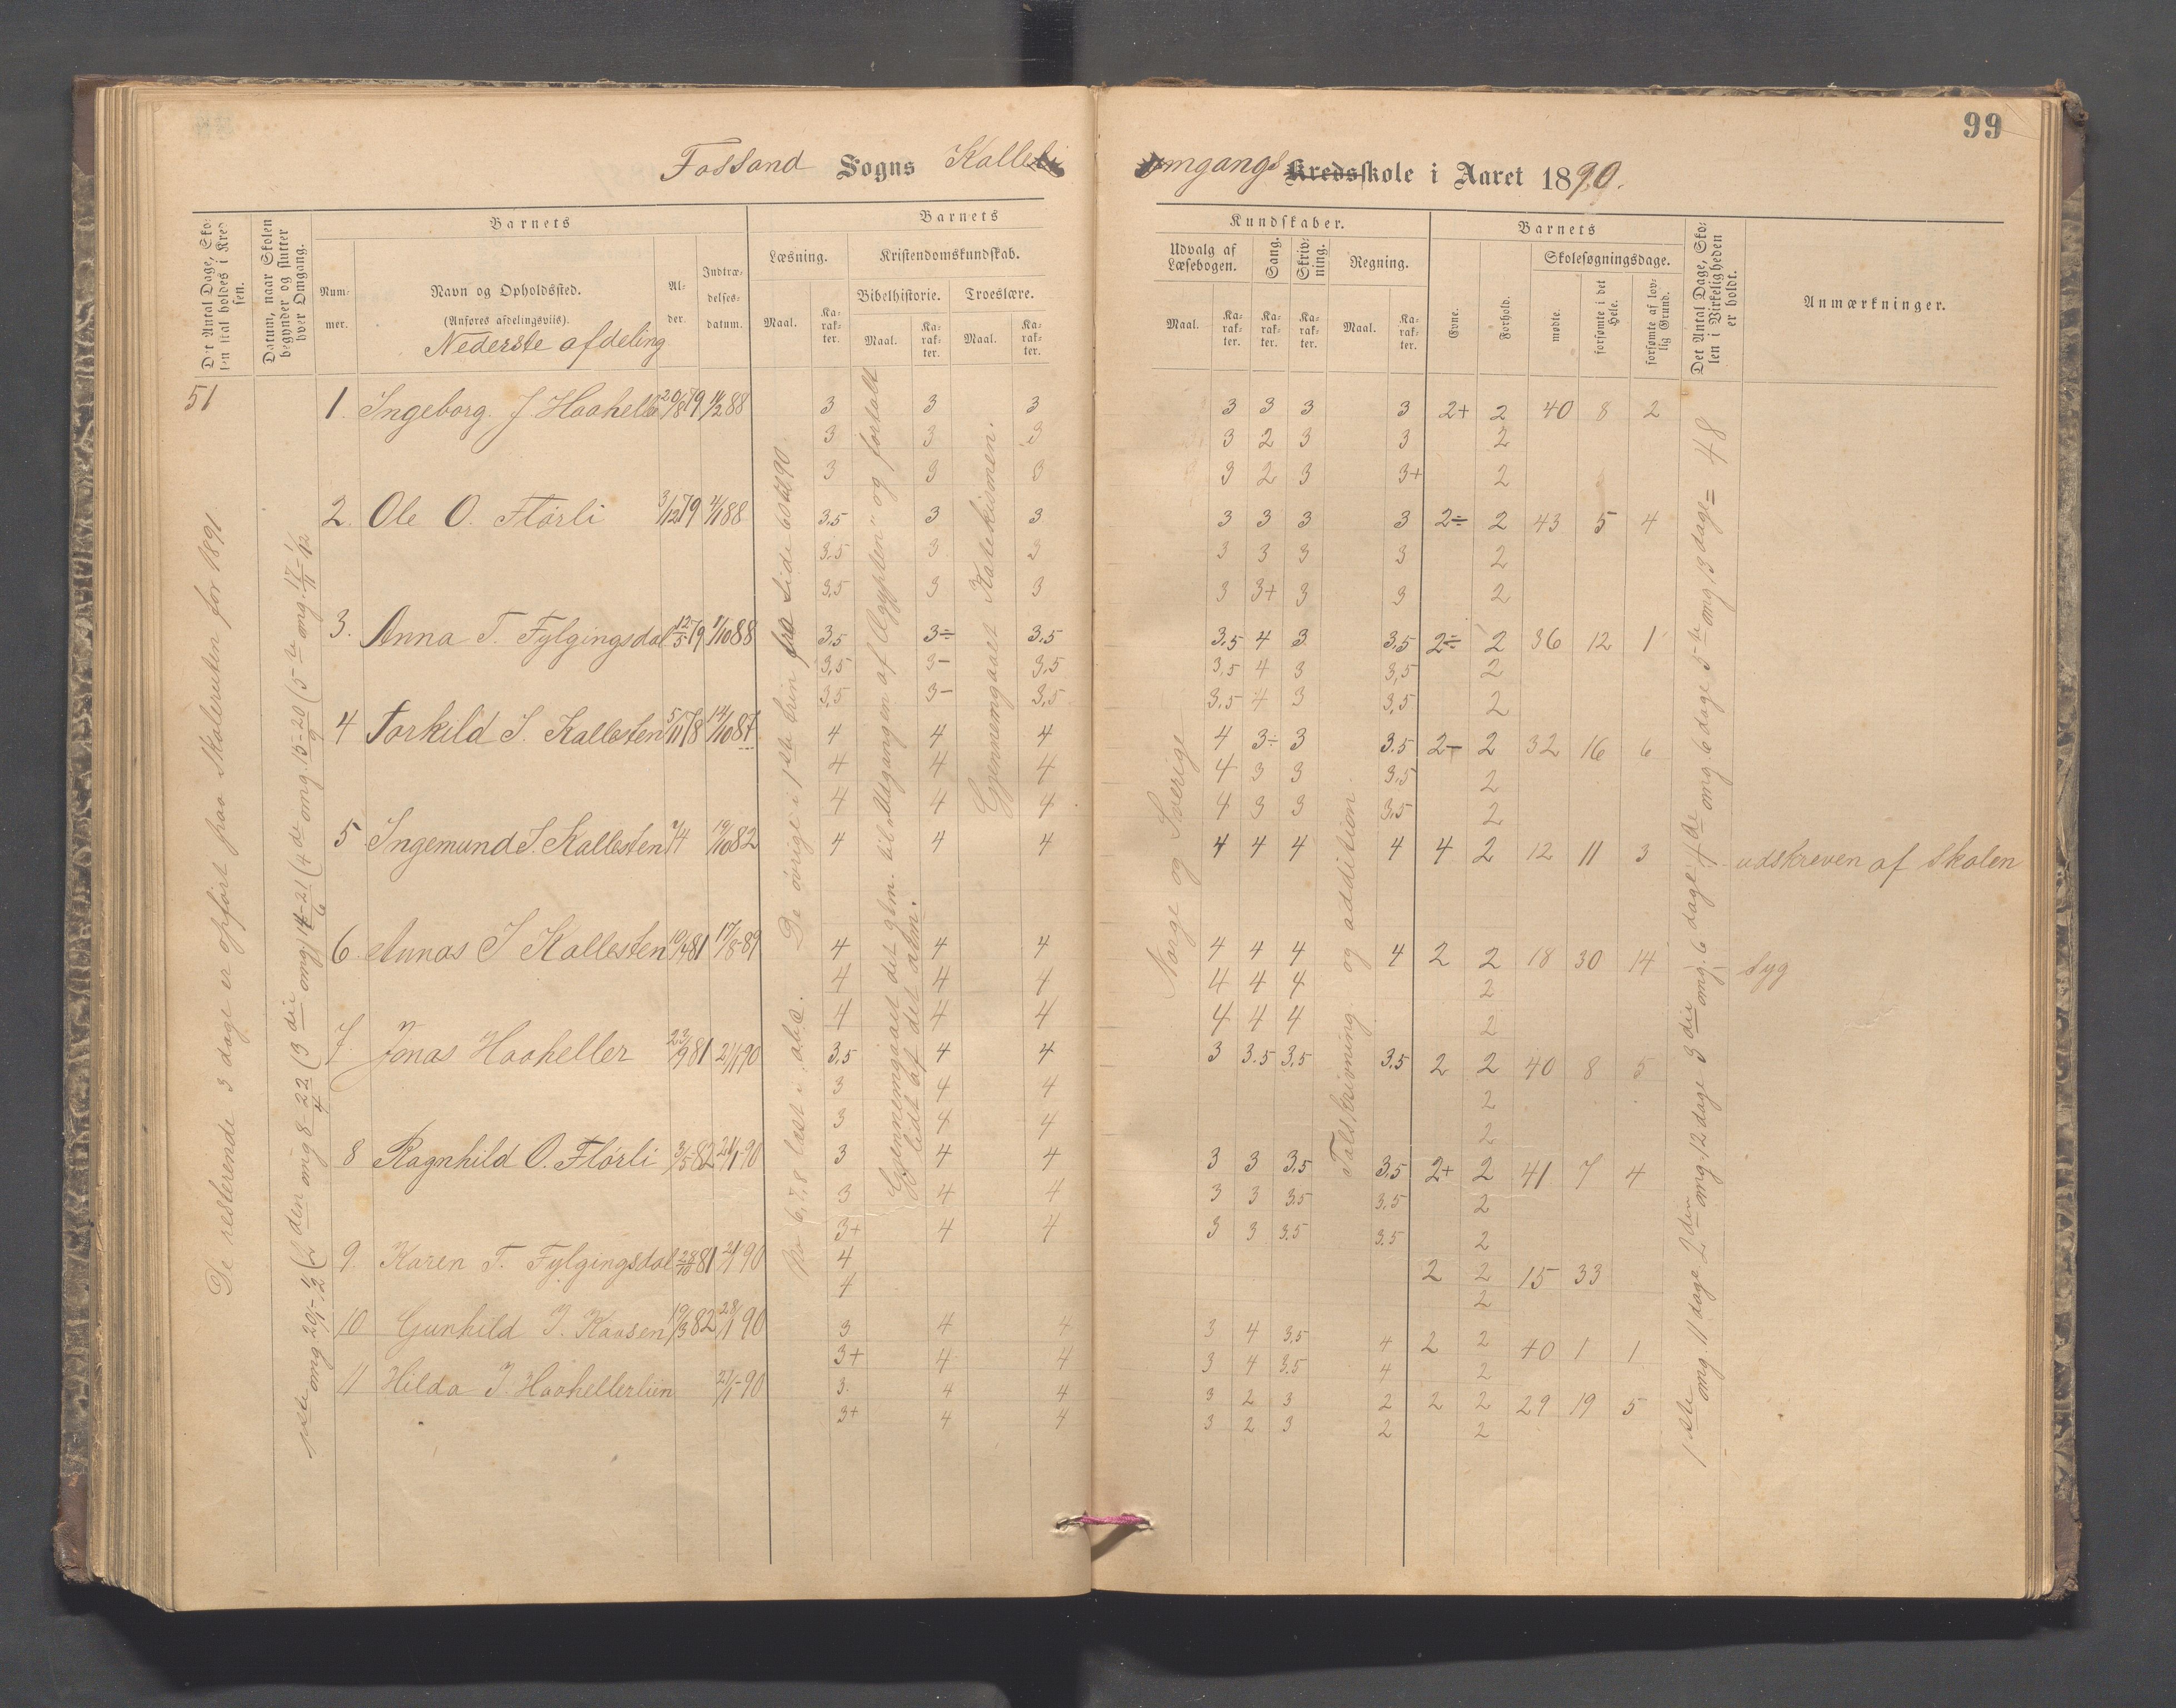 99
Fossand Sogns Kalleli
omgangs Kredsskole i Aaret 1890.
Det Antal Dage, Skolen skal holdes i Kredsen.
Datum, naar Skolen begynder og slutter hver Omgang.
Barnets
Nummer.
Navn og Opholdssted.
(Anføres afdelingsviis).
Nederste afdeling
Alder.
Indtrædelsesdatum.
Barnets
Læsning.
Kristendomskundskab.
Bibelhistorie.
Troeslære.
Maal.
Karakter.
Maal.
Karakter.
Maal.
Karakter.
Kundskaber.
Udvalg af Læsebogen.
Sang.
Skrivning.
Regning.
Maal.
Karakter.
Karakter.
Karakter.
Maal.
Karakter.
Barnets
Evne.
Forhold.
Skolesøgningsdage.
mødte.
forsømte i det Hele.
forsømte af lovlig Grund.
Det Antal Dage, Skolen i Virkeligheden er holdt.
Anmærkninger.
51
1. Ingeborg. J Haahelle 20/8 79 11/2 88 3 3 3 3 3 3 3 2+ 2 40 8 2
3 3 3 3 2 3 3 2
3 3 3 3 2 3 3+ 2
2. Ole O. Flørli 3/12 79 4/1 88 3,5 3 3 3 3 3 3 2÷ 2 43 5 4
3,5 3 3 3 3 3 3 2
3,5 3 3 3 3+ 3 3 2
3. Anna T. Fylgingsdal 12/5 79 9/10 88 3,5 3÷ 3,5 3,5 4 3 3,5 2÷ 2 36 12 1
3,5 3- 3,5 3,5 4 3 3,5 2
3,5 3- 3,5 3,5 4 3 3,5 2
4 Torkild S. Kallesten 5/11 78 14/10 87 4 4 4 4 3÷ 3 3.5 2- 2 32 16 6
4 4 4 4 3 3 3,5 2
4 4 4 4 3 3 3,5 2
5 Ingemund S. Kallesten 19/10 82 4 4 4 4 4 4 4 4 2 12 11 3 udskreven af Skolen
6. Aunas S Kallesten 10/4 81 17/5-89 4 4 4 4 4 4 4 2 2 18 30 14 syg
4 4 4 4 4 4 2
4 4 4 4 4 4 2
7. Jonas Haaheller 23/9 81 21/1 90 3,5 4 4 3 3.5 3,5 3,5 2 2 40 8 5
3 4 4 2
3 4 4 2
8 Ragnhild O. Flørli 3/5-82 21/1-90 3 4 4 3 3 3,5 3,5 2+ 2 41 7 4
3 4 4 3 3 3.5 3,5 2
3+ 4 4 3 3 3.5 3.5 2
9. Karen T. Fylgingsdal 28/10 81 21/1 90 4 2 2 15 33
4 2
10 Gunhild J. Kaasen 19/3 82 28/1 90 3 4 4 3 4 3,5 4 2 2 40 1 1
3+ 4 4 3 4 3.5 4 2
11 Hilda J. Haahellerliin 21/1-90 3. 4 4 3 2 3 2 2 2 29 19 5
3+ 4 4 3 2 3 2 2
De resterende 3 dage er opført paa Skoleruten for 1891
1ste omg 20/1-1/2 (2den omg 8-22/4 (3die omg) 14-21/6 (4de omg. 15-20/9 (5te omg. 17/11-1/12
No 6,7,8 læst i abc. De øvrige i 1ste trin fra Side 60 til 90
Gjennemgaaet det glm. til "Udgangen af Ægypten" og fortalt lidt af det alm.
Gjennemgaaet Katekismen.
Norge og Sverige
Talskrivning og addition.
1ste omg. 11 dage 2den omg. 12 dage 3die omg. 6 dage 4de omg. 6 dage 5te omg 13 dage = 48